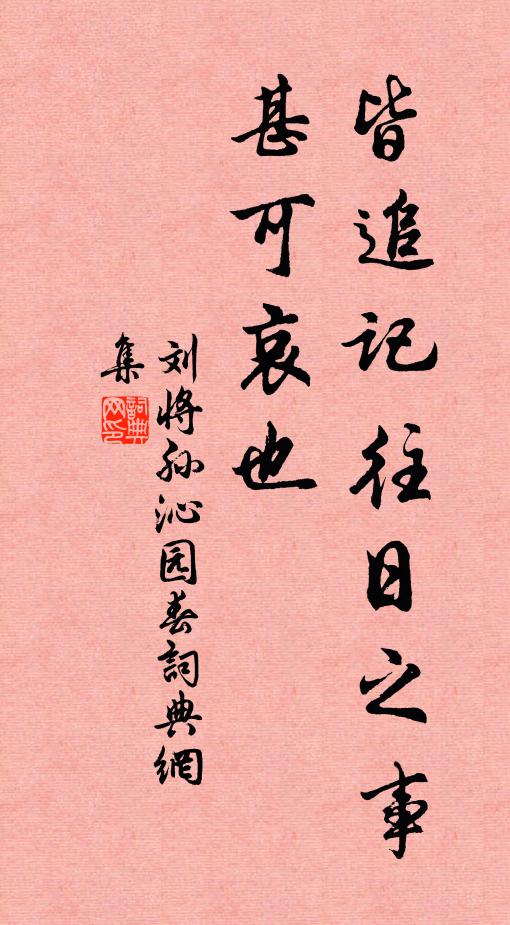 皆追记往日之事
甚可哀也
刘将孙沁园春詞典網
集
詞典
网印